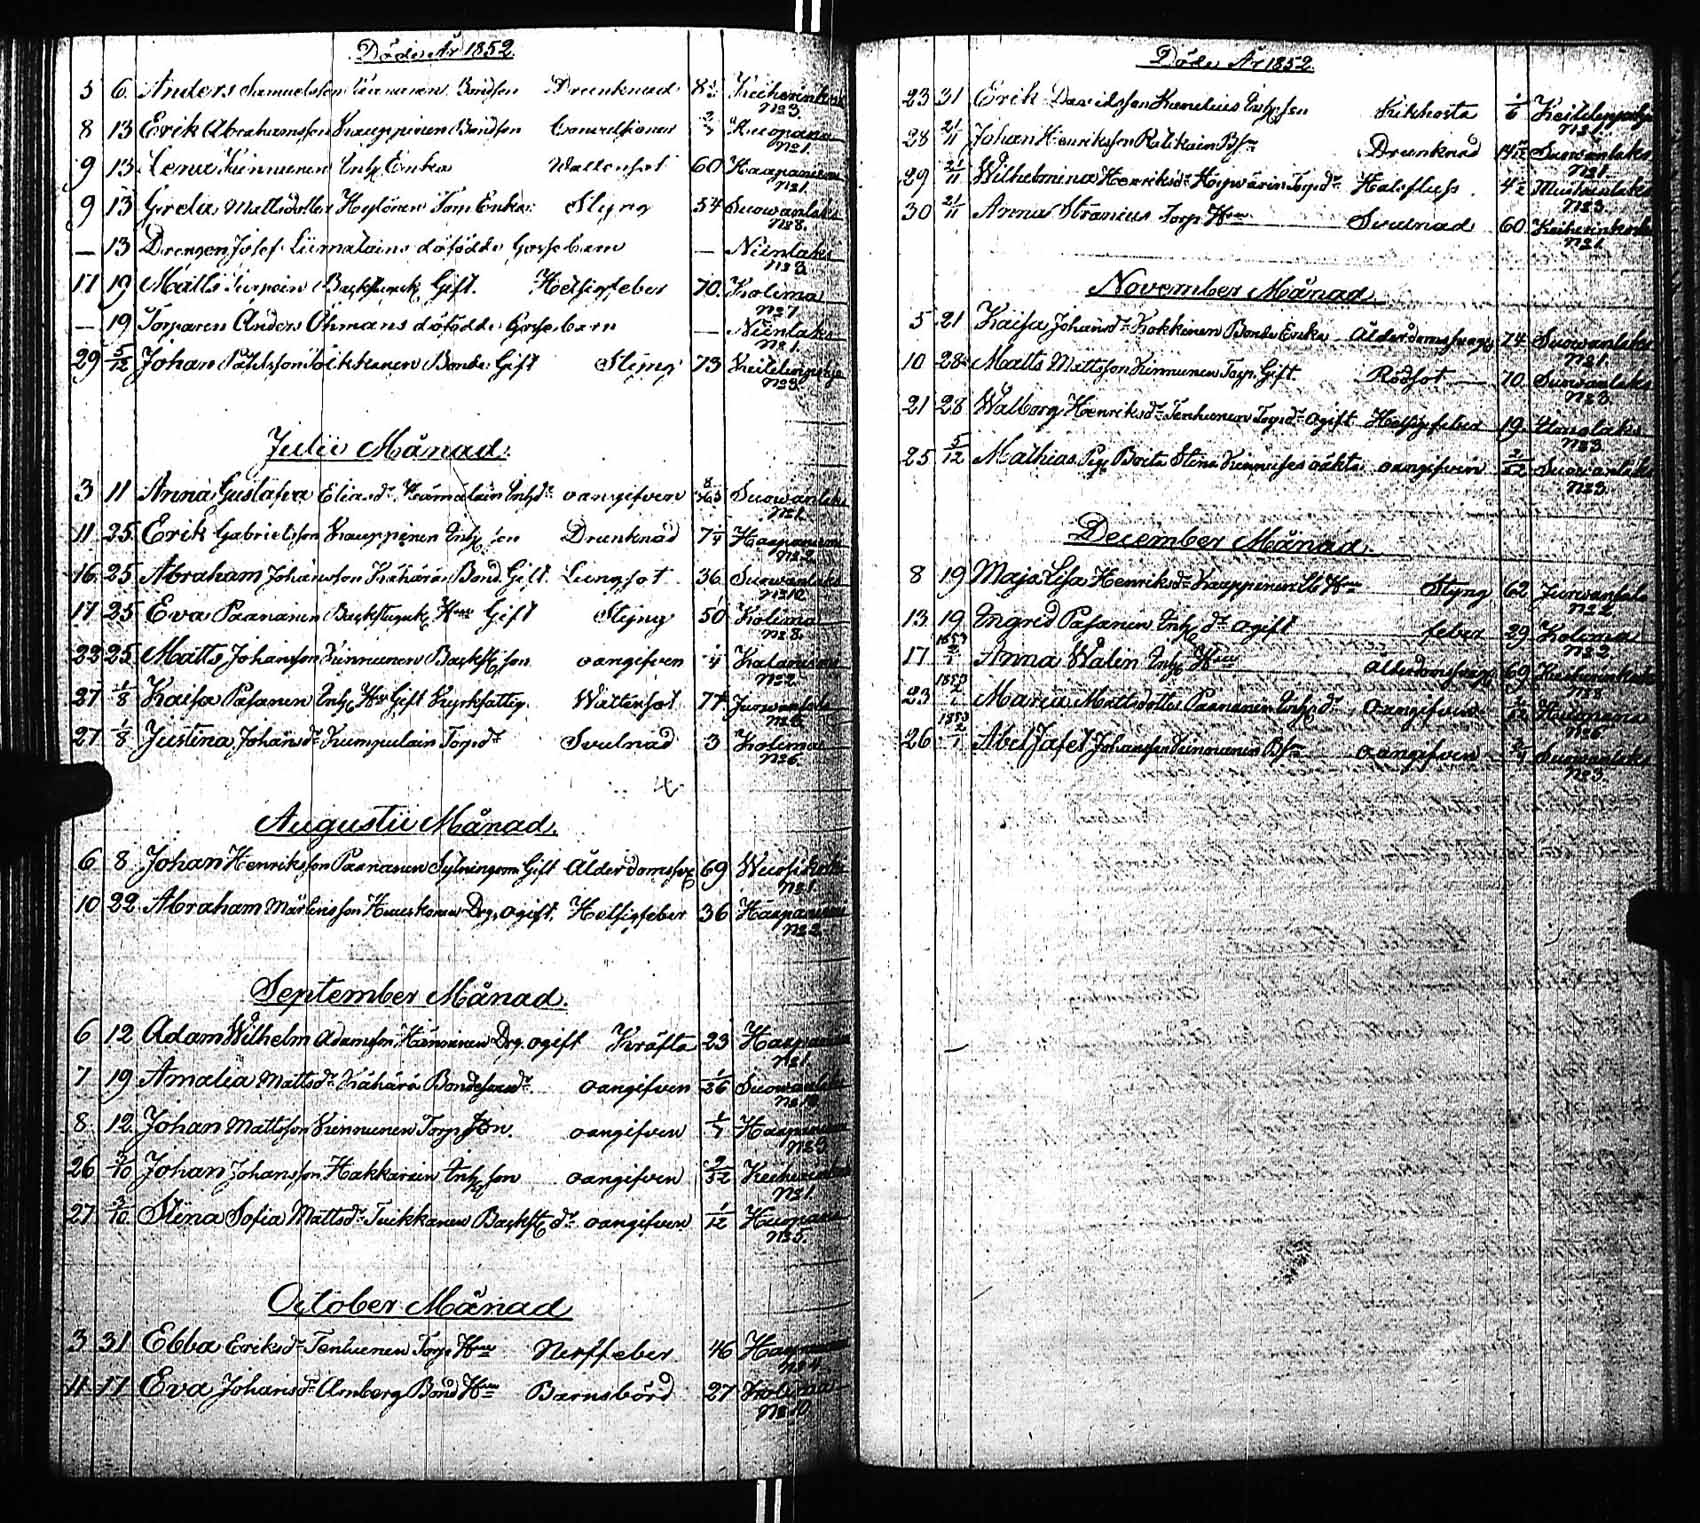 Döde År 1852.
5 6. Anders Samuelsson Kinnunen Bondson Drunknad 8 Keiherinkoski
No 3.
8 13 Erik Abrahamsson Kauppinen Bondson Convulsioner Huopana
No 1.
9 13 Lena Kinnunen Inh. Enka Wattensot 60 Haapaniemi
No 1.
9 13 Greta Mattsdotter Enka Styng 54 Suowanlaks
No 8.
— 13 Drengen Josef Liimatains dödfödde Gossebarn — Niinilaks
No 3.
17 19 Matts Backstugk. Gift. Hetsigfeber 70. Kolima
No 7.
— 19 Torparen Anders Öhmans dödfödde Gossebarn — Niinilaks
No 1.
29 5/12 Johan Påhlsson Bonde Gift Styng 73 Keitelenpohja
No 3.
Julii Månad.
3 11 Anna Gustafva Eliasdr Hämäläin Inh. dr oangifven Suowanlaks
No 1.
11 25. Erik Gabrielsson Kauppinen Inh. son Drunknad 7 1/4 Haapaniemi
No 2.
16. 25 Abraham Johansson Kähärä Bond. Gift. Lungsot 36 Suowanlaks
No 10.
17 25 Eva Paananen Backstugk. Hu Gift Styng 50 Kolima
No 8.
22 25 Matts Johansson Kinnunen Backst. son oangifven 1/4
No 2.
27 1/8 Kaisa Pasanen Inh. Hu Gift Kyrkfattig. Wattensot 74
No 6.
27 1/8 Justina Johansdr Kumpulain Torp. dr Svulnad 3 Kolima
No 6.
Augustii Månad.
6 8 Johan Henriksson Paananen Sytningsm. Gift Ålderdomssv. 69 Wuosi
No 1.
10 22. Abraham Mårtensson Huuskonen Drg. ogift. Hetsigfeber 36 Haapaniemi
No 2.
September Månad.
6 12 Adam Wilhelm Adamsson Drg. ogift Kräfta 23 Haapaniemi
No 1.
7 19 Amalia Mattsdr Kähärä Bonde dr oangifven 1/36 Suowanlaks
No 10.
8 12. Johan Mattsson Kinnunen Torp. Son. oangifven 1/7 Haapaniemi
No 9.
26 3/10 Johan Johansson Hakkarain Inh. son oangifven 9/52 Keiherinkoski
No 1.
27 3/10 Stina Sofia Mattsdr Tuikkanen Backst. dr oangifven 1/12 Huopana
No 5.
October Månad
3 31 Ebba Eriksdr Tenhunen Torp. Hu Nerffeber 46 Haapaniemi
No 4.
11 17 Eva Johansdr Almberg Bond Hu Barnsbörd 27 Kolima
No 10.
Döde År 1852.
23 31 Erik Davidsson Kanelius Inh. son Kikhosta 1/6 Keitelenpohja
No 1.
28 21/11 Johan Henriksson Bson Drunknad Suowanlaks
No 1.
29 21/11 Wilhelmina Henriksdr Torp. dr Halsfluss 4
No 3.
30 21/11 Anna Stranius Torp. Hu Svulnad 60 Keiherinkoski
No 1.
November Månad
5 21 Kaisa Johansdr Kokkinen Bonde Enka Ålderdomssvag. 74 Suowanlaks
No 1.
10 28 Matts Mattsson Kinnunen Torp. Gift. Rödsot 70. Suowanlaks
No 3.
21 28 Walborg Henriksdr Tenhunen Torp. dr ogift Hetsigfeber 19
No 3.
25 5/12 Mathias Pig. Brita Stina Kinnuses oäkta oangifven Suowanlaks
No 3.
December Månad.
8 19 Maja Lisa Henriksdr Kauppinen Hu Styng 62
No 2.
13 19 Ingrid Pasanen Inh. dr ogift feber 29 Kolima
No 2.
17 1853 2/1 Anna Walin Inh. Hu Ålderdomssvag. 69 Keiherinkoski
No 8.
23 1853 2/1 Maria Mattsdotter Paananen Inh. dr oangifven Huopana
No 5
26 1853 2/1 Abel Jafet Johansson Kinnunen Bson oangifven 3/4 Suowanlaks
No 3.